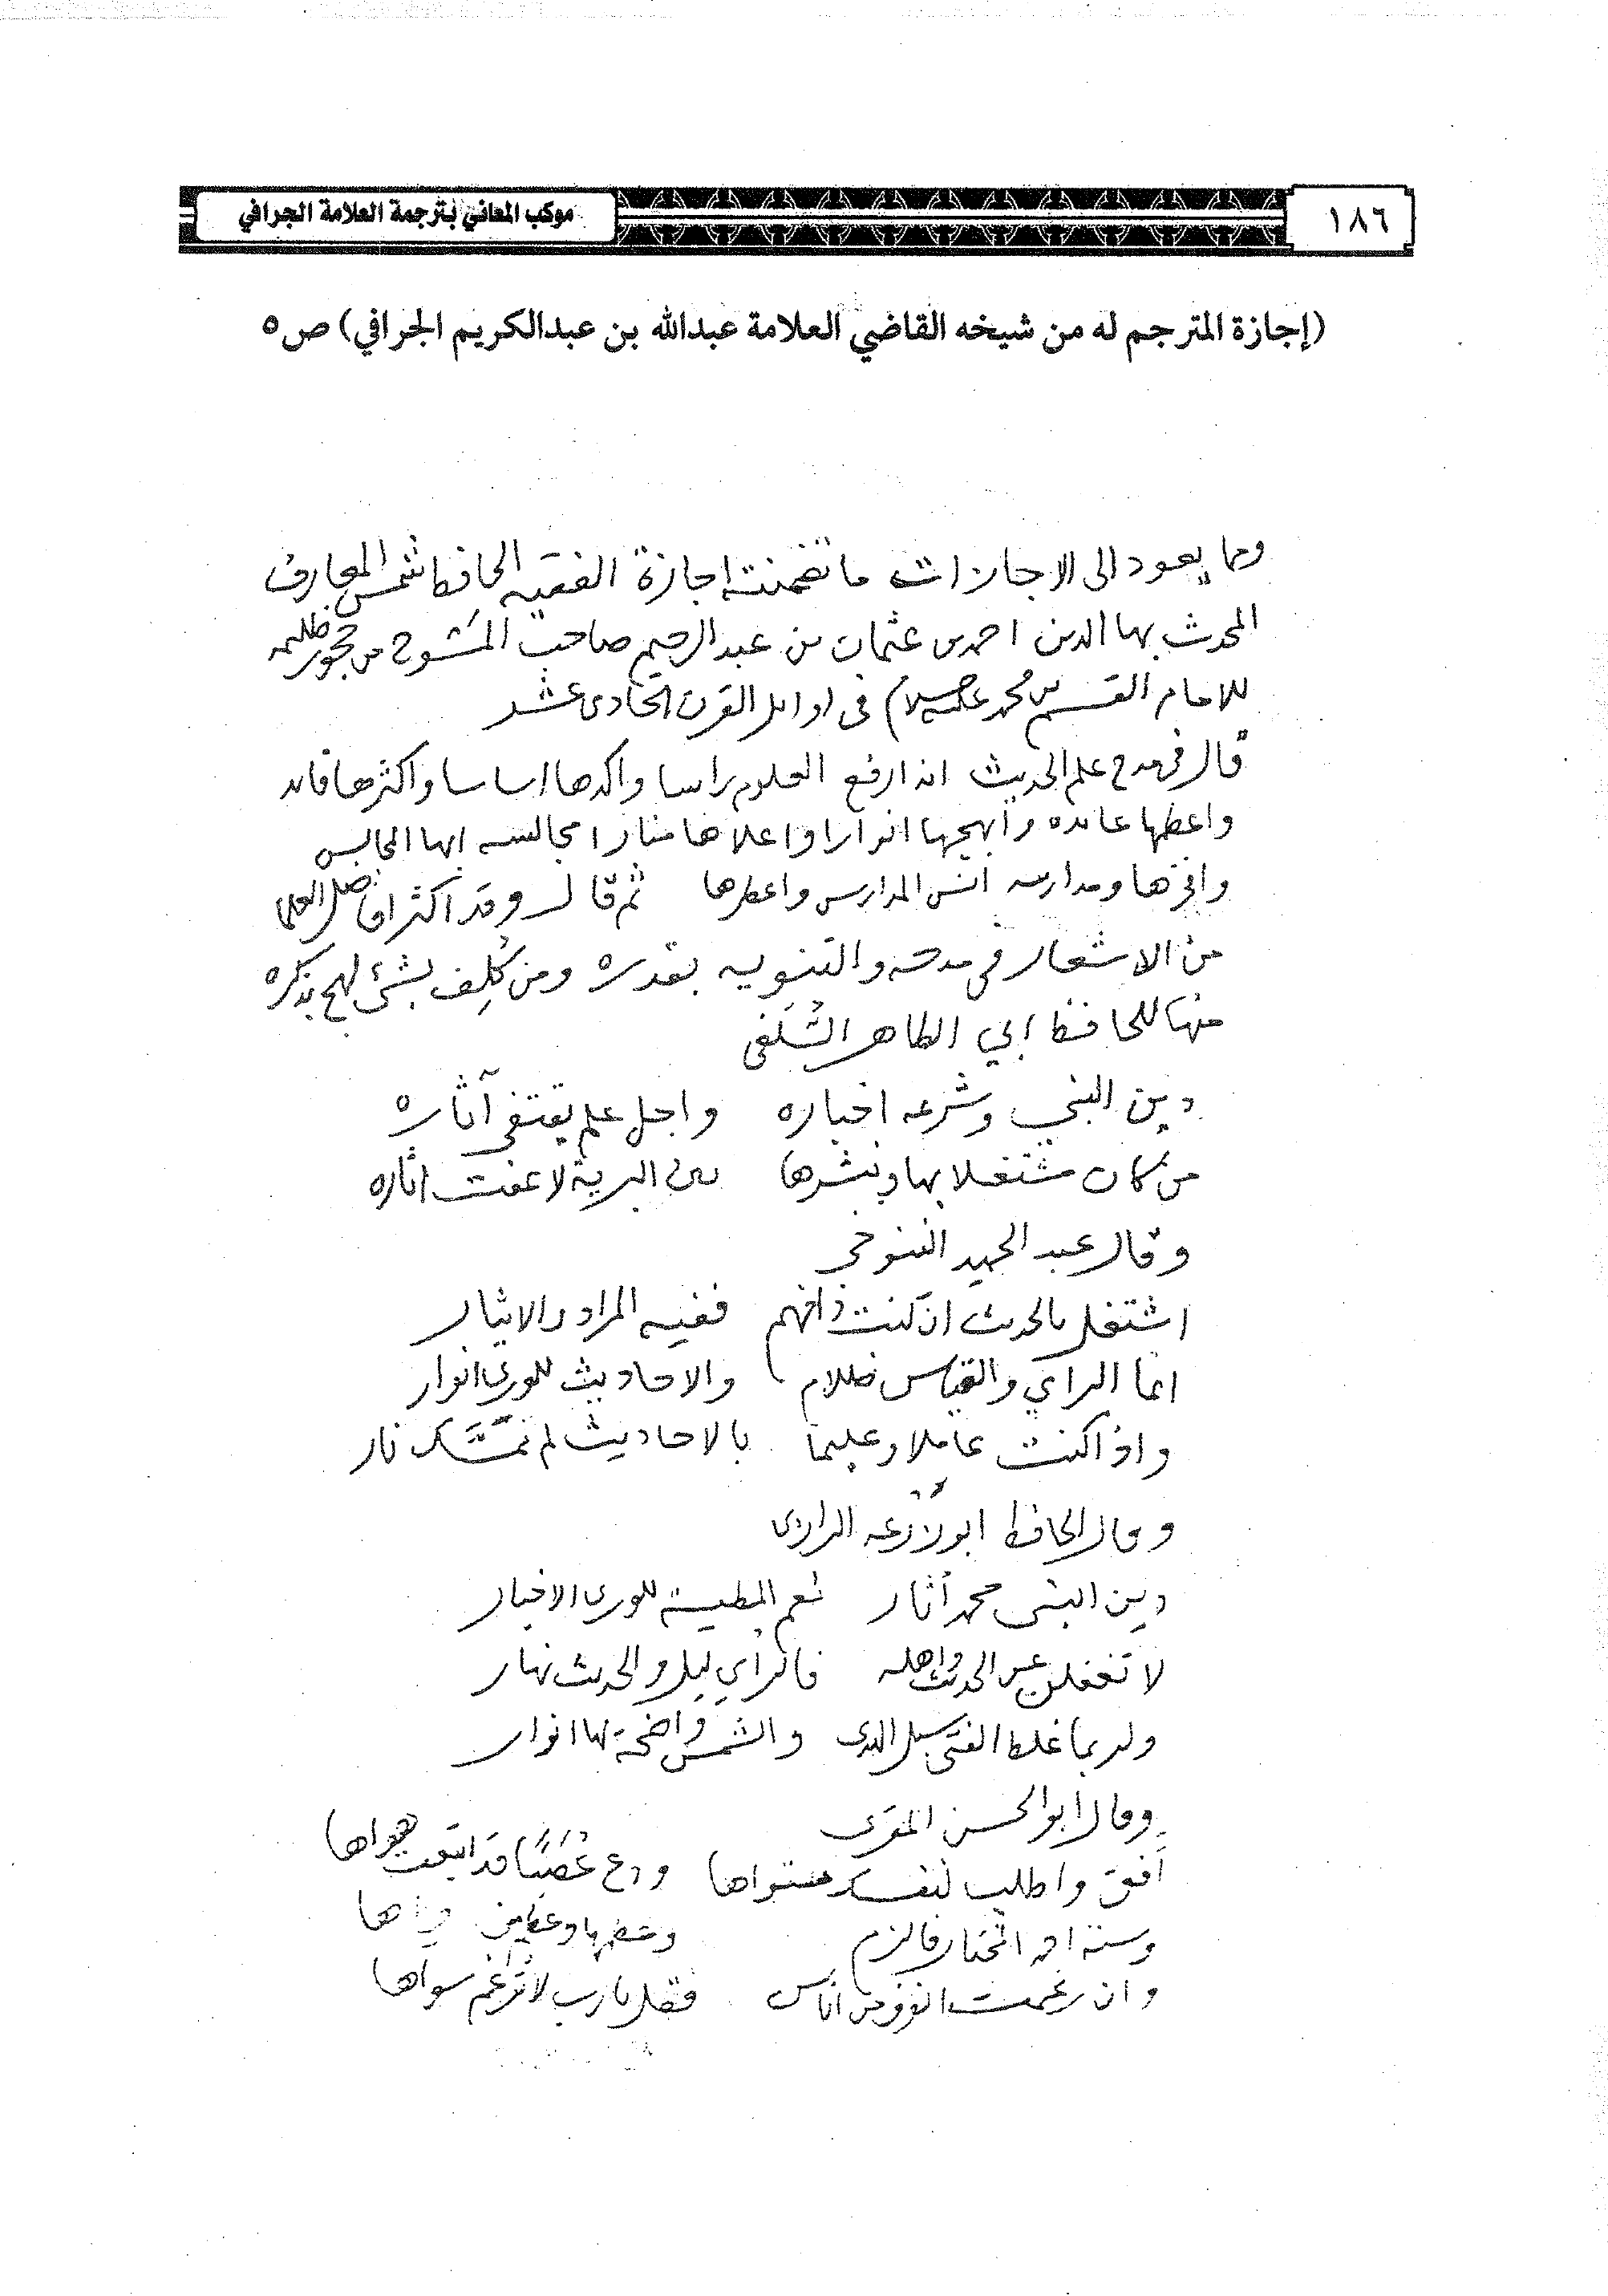 ١٨٦
موكب المعاني بترجمة العلامة الجرافي
(إجازة المترجم له من شيخه القاضي العلامة عبدالله بن عبدالكريم الجرافي) ص ٥
ومما يعود الى الاجازات ما تضمنته اجازة الفقيه الحافظ شمس المعارف
المحدث بها الدين احمد بن عثمان بن عبد الرحيم صاحب المسوح من حجور ظليمه
للامام القسم بن محمد عليه السلام في اوايل القرن الحادي عشر
قال في مدح علم الحديث انه ارفع العلوم راسا واكدها اساسا واكثرها فايده
واعظمها عايده وابهجها انوارا واعلاها منارا مجالسه ابها المجالس
وافخرها ومدارسه انس المدارس واعطرها ثم قال وقد اكثر افاضل العلما
من الاشعار في مدحه والتنويه بقدره ومن كلف بشئ لهج بذكره
منها للحافظ ابي الطاهر السلفي
دين النبي وشرعه اخباره واجل علم يقتفى آثاره
من كان مشتغلا بها وبنشرها بين البرية لا عفت اثاره
وقال عبد الحميد التنوخي
اشتغل بالحديث ان كنت ذا فهم ففيه المراد والايثار
انما الراي والقياس ظلام والاحاديث للورى انوار
واذا كنت عاملا وعليما بالاحاديث لم تمسك نار
وقال الحافظ ابو زرعه الرازي
دين النبي محمد آثار نعم المطية للورى الاخبار
لا تغفلن عن الحديث واهله فالرأي ليل والحديث نهار
ولربما غلط الفتى سبل الهدى والشمس واضحة لها انوار
وقال ابو الحسن المقري
أفق واطلب لنفسك مستواها ودع عصبا قد اتبعت هواها
وسنة احمد المختار فالزم وعظمها وعظم من
وان رغمت انوف من اناس فقل يا رب لا ترغم سواها